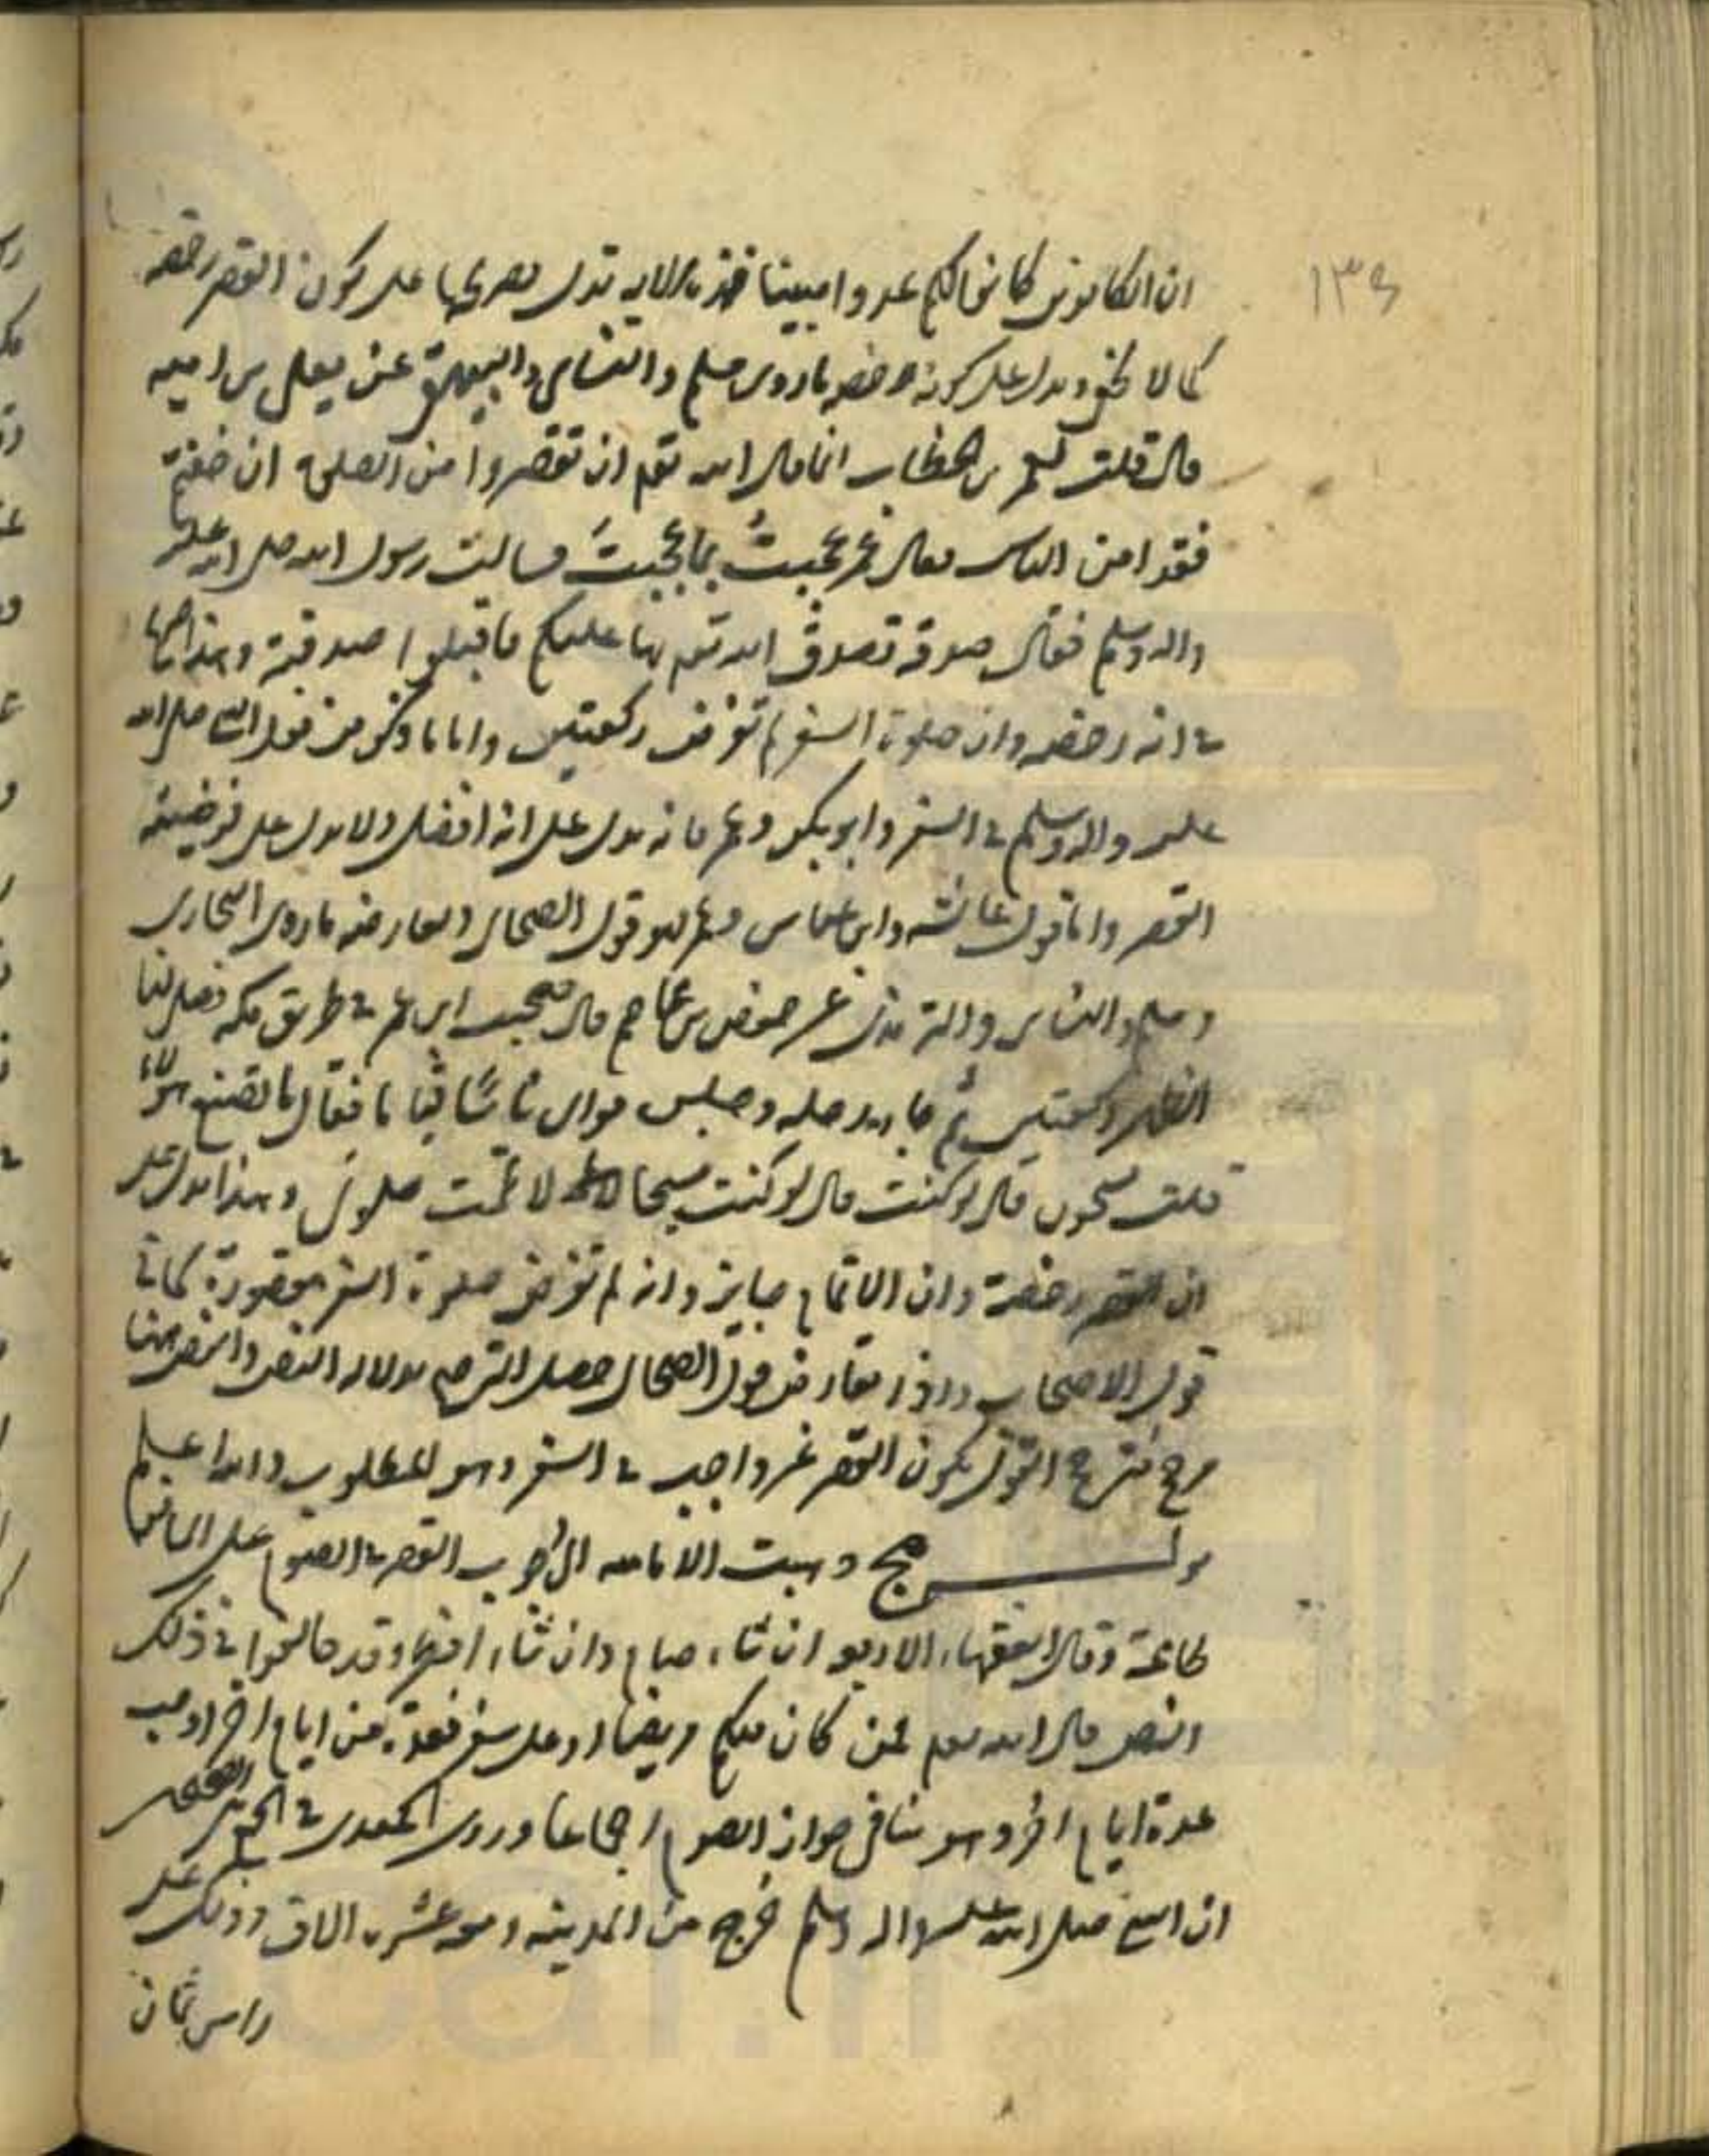 ١٣٤
ان الكافرين كانوا لكم عدوا مبينا فهذه الاية تدل بصريحها على كون القصر رخصة
كما لا يخفى ويدل على كونه رخصة ما روى مسلم والنسائي والبيهقي عن يعلى بن امية
قال قلت لعمر بن الخطاب انما قال الله تعم ان تقصروا من الصلوة ان خفتم
فقد امن الناس فقال عمر عجبتُ مما عجبتَ فسالت رسول الله صلى الله عليه
واله وسلم فقال صدقة تصدق الله تعم بها عليكم فاقبلوا صدقته وهذا
في انه رخصة وان صلوة السفر لم تفرض ركعتين واما ما ذكر من فعل النبي صلى الله
عليه واله وسلم في السفر وابو بكر وعمر فانه يدل على انه افضل ولا يدل على فرضية
القصر واما قول عائشة وابن عباس وعمر فهو قول الصحابي ويعارضه ما روى البخاري
ومسلم والنسائي والترمذي عن حفص بن عاصم قال صحبت ابن عمر في طريق مكة فصلى لنا
الظهر ركعتين ثم جاء رحله وجلس فراى ناسا قياما فقال ما يصنع هؤلاء
قلت يسبحون قال لو كنت قال لو كنت مسبحا لاتممت صلوتي وهذا يدل على
ان القصر رخصة وان الاتمام جايز وانه لم تفرض صلوة السفر مقصورة كما في
قول الاصحاب واذا تعارض قول الصحابي حصل الترجيح بدلالة النص والنص ههنا
مرجح فترجح القول بكون القصر غير واجب في السفر وهو المطلوب والله اعلم
قولـــــه وذهبت الامامية الى وجوب القصر في الصوم على السافر
لطاعة وقال الفقهاء الاربعة ان شاء صام وان شاء افطر وقد خالفوا في ذلك
النص قال الله تعم فمن كان منكم مريضا او على سفر فعدة من ايام اخر اوجب
عدة ايام اخر وهو ينافي جواز الصوم اجماعا وروى الحميدي في الجمع بين الصحيحين
ان النبي صلى الله عليه واله وسلم خرج من المدينة ومعه عشرة الاف وذلك على
راس ثمان